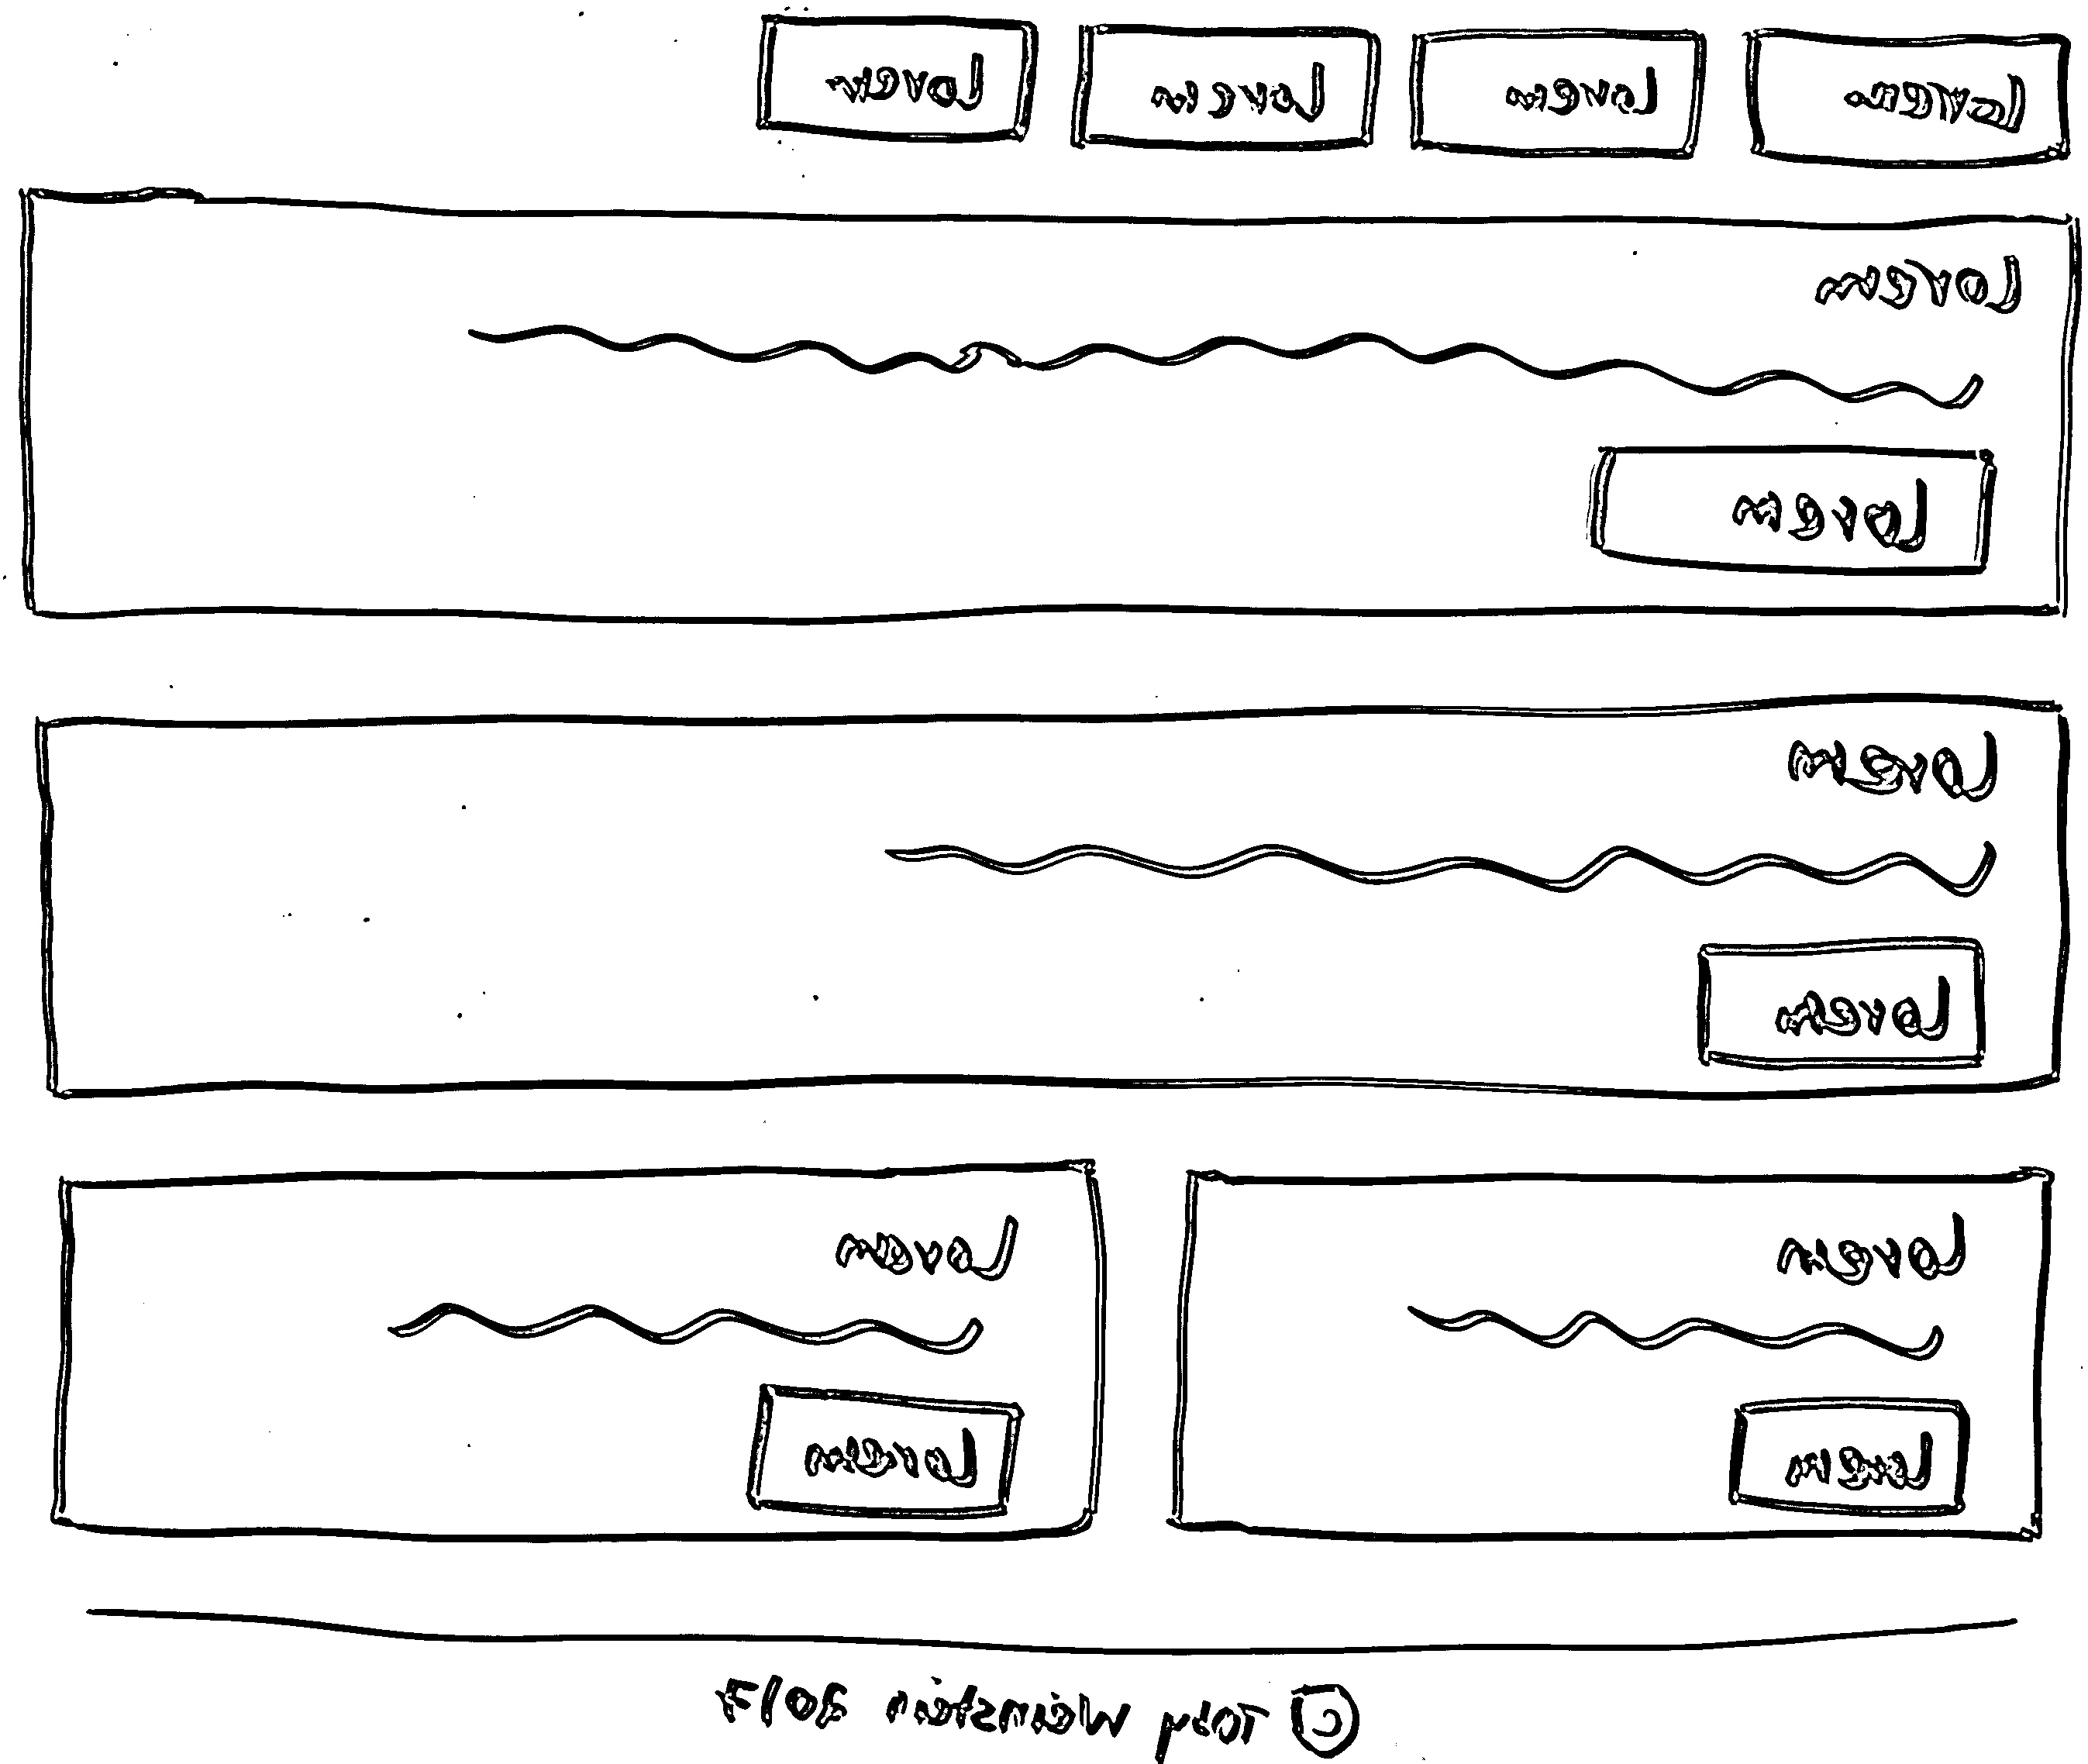 Lorem Lorem Lorem Lorem
Lorem
Lorem
Lorem
Lorem
Lorem Lorem
Lorem Lorem
© Weinstein 2017